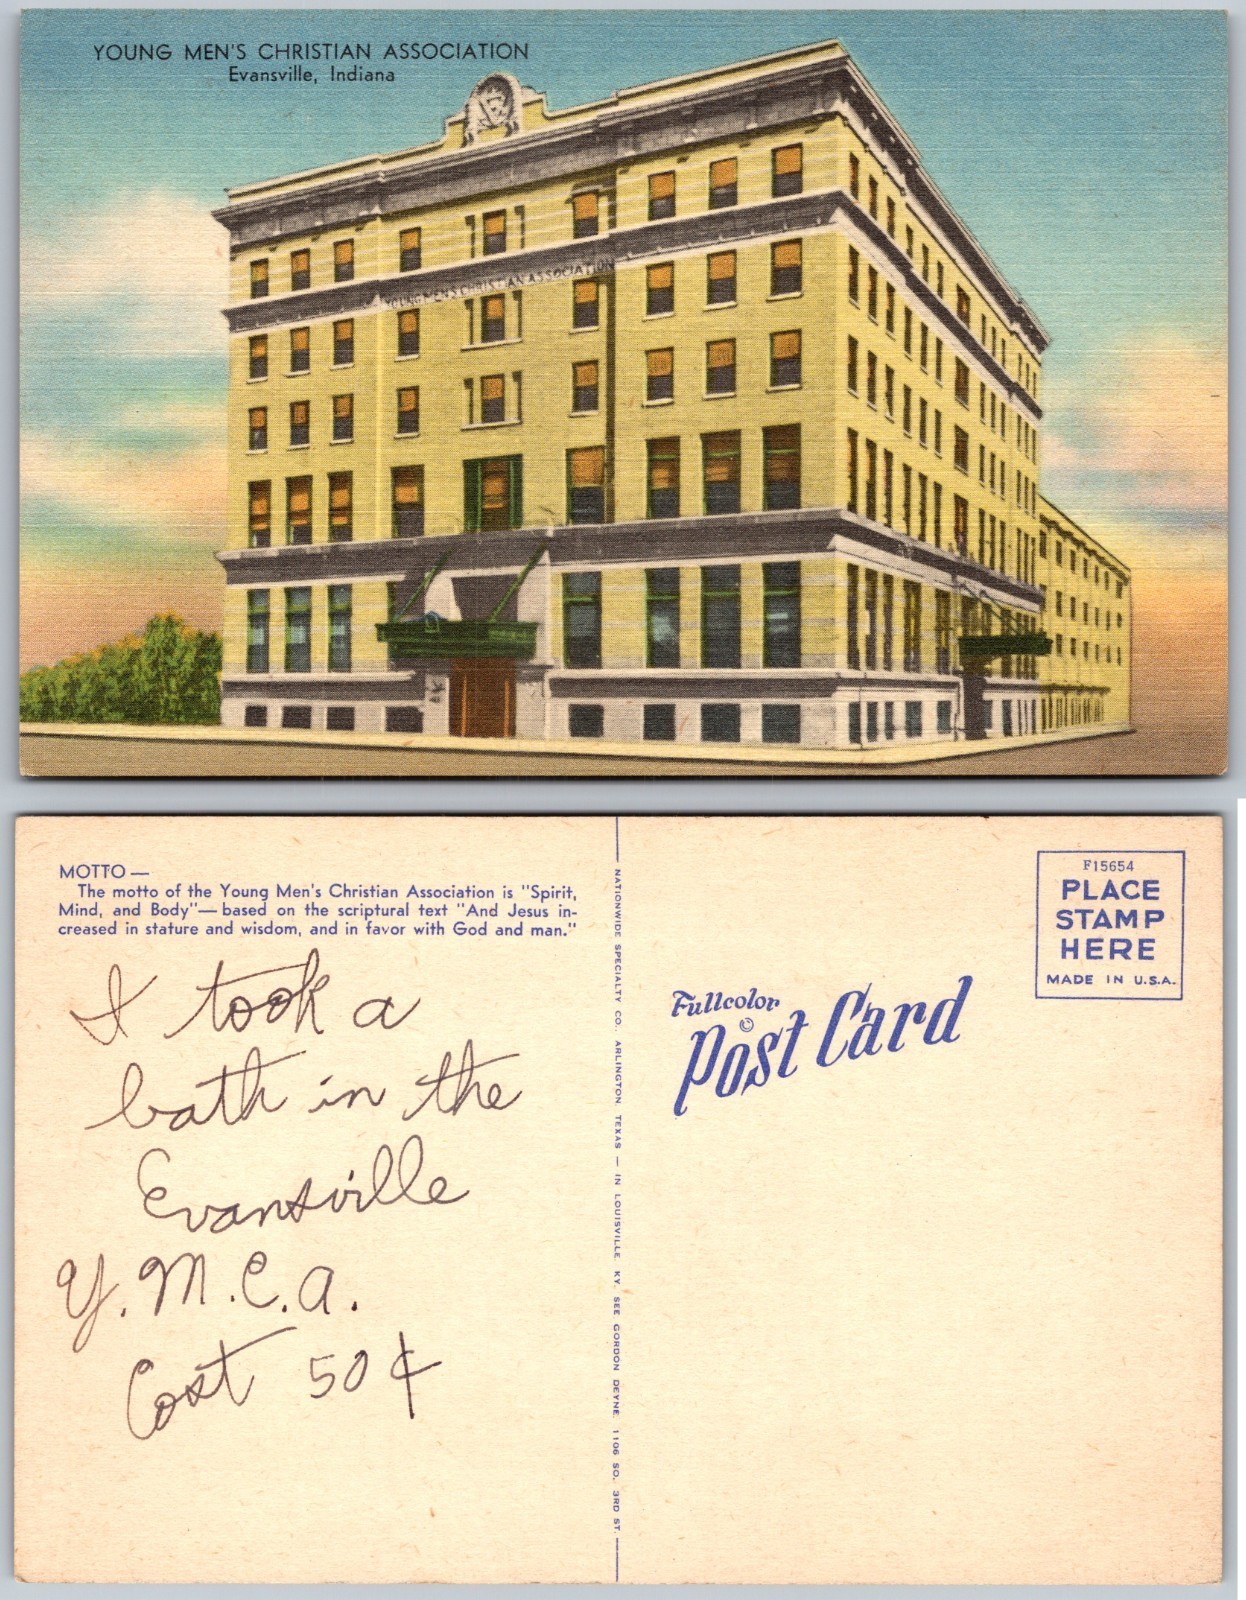 YOUNG MEN'S CHRISTIAN ASSOCIATION
Evansville, Indiana
YOUNG MEN'S CHRISTIAN ASSOCIATION
MOTTO —
The motto of the Young Men's Christian Association is "Spirit,
Mind, and Body"—based on the scriptural text "And Jesus in-
creased in stature and wisdom, and in favor with God and man."
I took a
bath in the
Evansville
Y.M.C.A.
Cost 50¢
NATIONWIDE SPECIALTY CO., ARLINGTON, TEXAS — IN LOUISVILLE KY. SEE GORDON DEYNE, 1106 SO. 3RD ST.
Fullcolor
Post Card
©
F15654
PLACE
STAMP
HERE
MADE IN U.S.A.